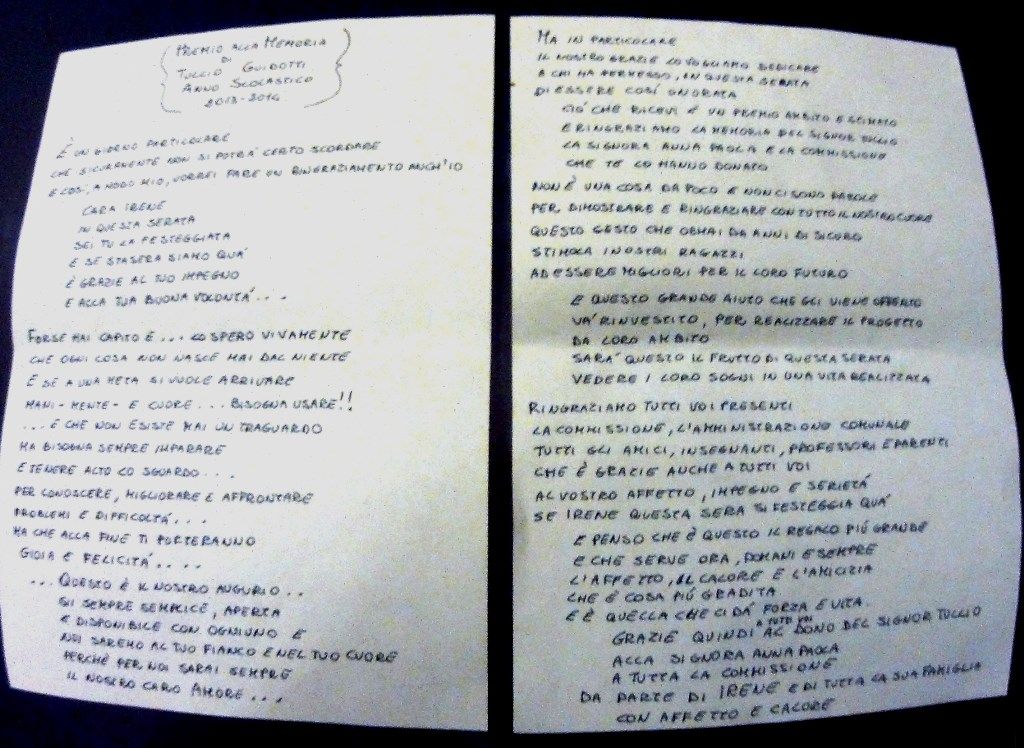 PREMIO ALLA MEMORIA
DI
TULLIO GUIDOTTI
ANNO SCOLASTICO
2013-2014
È UN GIORNO PARTICOLARE
CHE SICURAMENTE NON SI POTRÀ CERTO SCORDARE
E COSÌ, A MODO MIO, VORREI FARE UN RINGRAZIAMENTO ANCH'IO
CARA IRENE
IN QUESTA SERATA
SEI TU LA FESTEGGIATA
E SE STASERA SIAMO QUÀ
È GRAZIE AL TUO IMPEGNO
E ALLA TUA BUONA VOLONTÀ...
FORSE HAI CAPITO E... LO SPERO VIVAMENTE
CHE OGNI COSA NON NASCE MAI DAL NIENTE
E SE A UNA META SI VUOLE ARRIVARE
MANI-MENTE-E CUORE... BISOGNA USARE!!
...E CHE NON ESISTE MAI UN TRAGUARDO
MA BISOGNA SEMPRE IMPARARE
E TENERE ALTO LO SGUARDO...
PER CONOSCERE, MIGLIORARE E AFFRONTARE
PROBLEMI E DIFFICOLTÀ...
MA CHE ALLA FINE TI PORTERANNO
GIOIA E FELICITÀ....
...QUESTO È IL NOSTRO AUGURIO..
SII SEMPRE SEMPLICE, APERTA
E DISPONIBILE CON OGNIUNO E
NOI SAREMO AL TUO FIANCO E NEL TUO CUORE
PERCHÈ PER NOI SARAI SEMPRE
IL NOSTRO CARO AMORE...
MA IN PARTICOLARE
IL NOSTRO GRAZIE LO VOGLIAMO DEDICARE
A CHI HA PERMESSO, IN QUESTA SERATA
DI ESSERE COSÌ ONORATA
CIÒ CHE RICEVI È UN PREMIO AMBITO E STIMATO
E RINGRAZIAMO LA MEMORIA DEL SIGNOR TULLIO
LA SIGNORA ANNA PAOLA E LA COMMISSIONE
CHE TE LO HANNO DONATO
NON È UNA COSA DA POCO E NON CI SONO PAROLE
PER DIMOSTRARE E RINGRAZIARE CON TUTTO IL NOSTRO CUORE
QUESTO GESTO CHE ORMAI DA ANNI DI SICURO
STIMOLA I NOSTRI RAGAZZI
AD ESSERE MIGLIORI PER IL LORO FUTURO
E QUESTO GRANDE AIUTO CHE GLI VIENE OFFERTO
VA' RINVESTITO, PER REALIZZARE IL PROGETTO
DA LORO AMBITO
SARA' QUESTO IL FRUTTO DI QUESTA SERATA
VEDERE I LORO SOGNI IN UNA VITA REALIZZATA
RINGRAZIAMO TUTTI VOI PRESENTI
LA COMMISSIONE, L'AMMINISTRAZIONO COMUNALE
TUTTI GLI AMICI, INSEGNANTI, PROFESSORI E PARENTI
CHE È GRAZIE ANCHE A TUTTI VOI
AL VOSTRO AFFETTO, IMPEGNO E SERIETÀ
SE IRENE QUESTA SERA SI FESTEGGIA QUÀ
E PENSO CHE È QUESTO IL REGALO PIÙ GRANDE
E CHE SERVE ORA, DOMANI E SEMPRE
L'AFFETTO, IL CALORE E L'AMICIZIA
CHE È COSA PIÙ GRADITA
E È QUELLA CHE CI DÀ FORZA E VITA.
GRAZIE QUINDI A TUTTI VOI AL DONO DEL SIGNOR TULLIO
ALLA SIGNORA ANNA PAOLA
A TUTTA LA COMMISSIONE
DA PARTE DI IRENE E DI TUTTA LA SUA FAMIGLIA
CON AFFETTO E CALORE